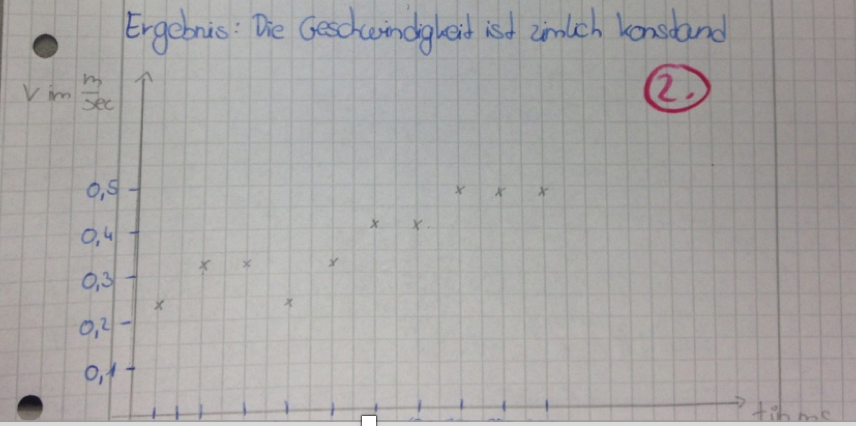 Ergebnis: Die Geschwindigkeit ist zimlich konstand
V im m/sec
2.
0,5
0,4
0,3
0,2
0,1
t in ms